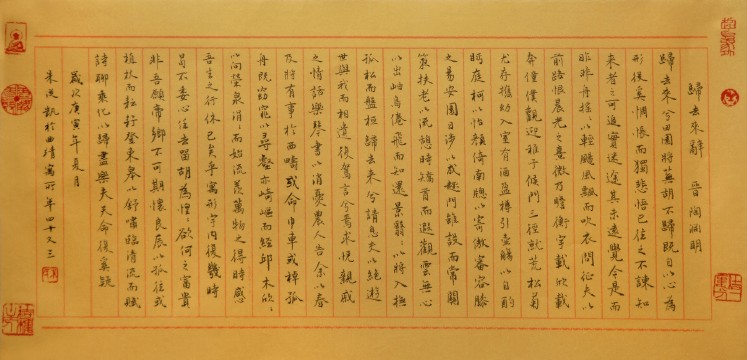 歸去來辭 晋陶渊明
歸去來兮田園將蕪胡不歸既自以心為
形役奚惆悵而獨悲悟已往之不諫知
來者之可追實迷途其未遠覺今是而
昨非舟搖〻以輕颺風飄〻而吹衣問征夫以
前路恨晨光之熹微乃瞻衡宇載欣載
奔僮僕歡迎稚子候門三徑就荒松菊
尤存攜幼入室有酒盈樽引壺觴以自酌
眄庭柯以怡顏倚南牕以寄傲審容膝
之易安園日涉以成趣門雖設而常關
策扶老以流憩時矯首而遐觀雲無心
以出岫鳥倦飛而知還景翳〻以將入撫
孤松而盤桓歸去來兮請息交以絕遊
世與我而相違復駕言兮焉求悅親戚
之情話樂琴書以消憂農人告余以春
及將有事於西疇或命巾車或棹孤
舟既窈窕以尋壑亦崎嶇而經邱木欣〻
以向榮泉涓〻而始流羨萬物之得時感
吾生之行休已矣乎寓形宇內復幾時
曷不委心任去留胡為惶〻欲何之富貴
非吾願帝鄉不可期懷良辰以孤往或
植杖而耘耔登東皋以舒嘯臨清流而賦
詩聊乘化以歸盡樂夫天命復奚疑
歲次庚寅年夏月
朱 於曲靖寓所年四十又三